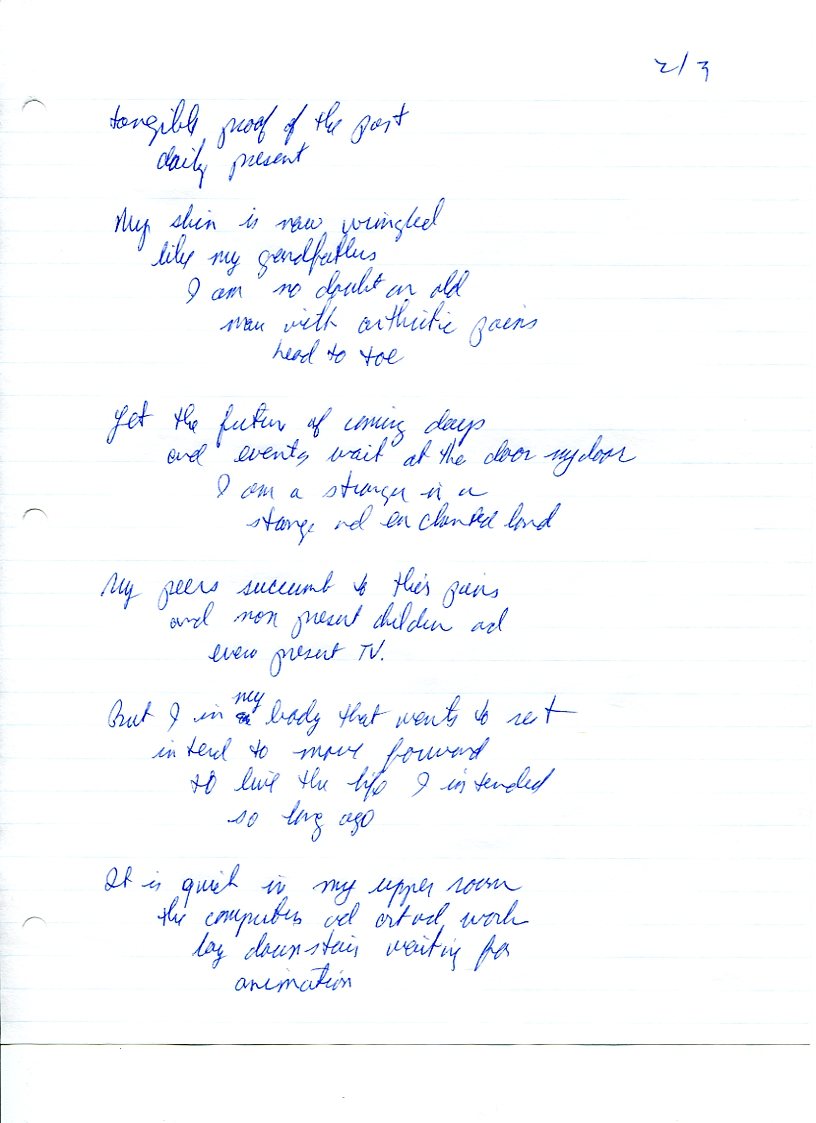 2/3
tangible proof of the past
daily present
My skin is now wringled
like my grandfathers
I am no doubt an old
man with arthritic pains
head to toe
Yet the future of coming days
and events wait at the door my door
I am a stranger in a
stange and enchanted land
My peers succumb to their pains
and non present children and
ever present TV.
But I in my body that wants to rest
intend to move forward
to live the life I intended
so long ago
It is quiet in my upper room
the computers and art and work
lay downstairs waiting for
animation